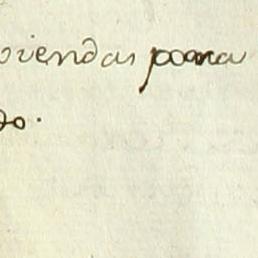 oviendas poara
do.